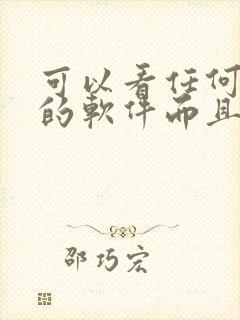 可以看任何
的軟件而且
邵巧宏